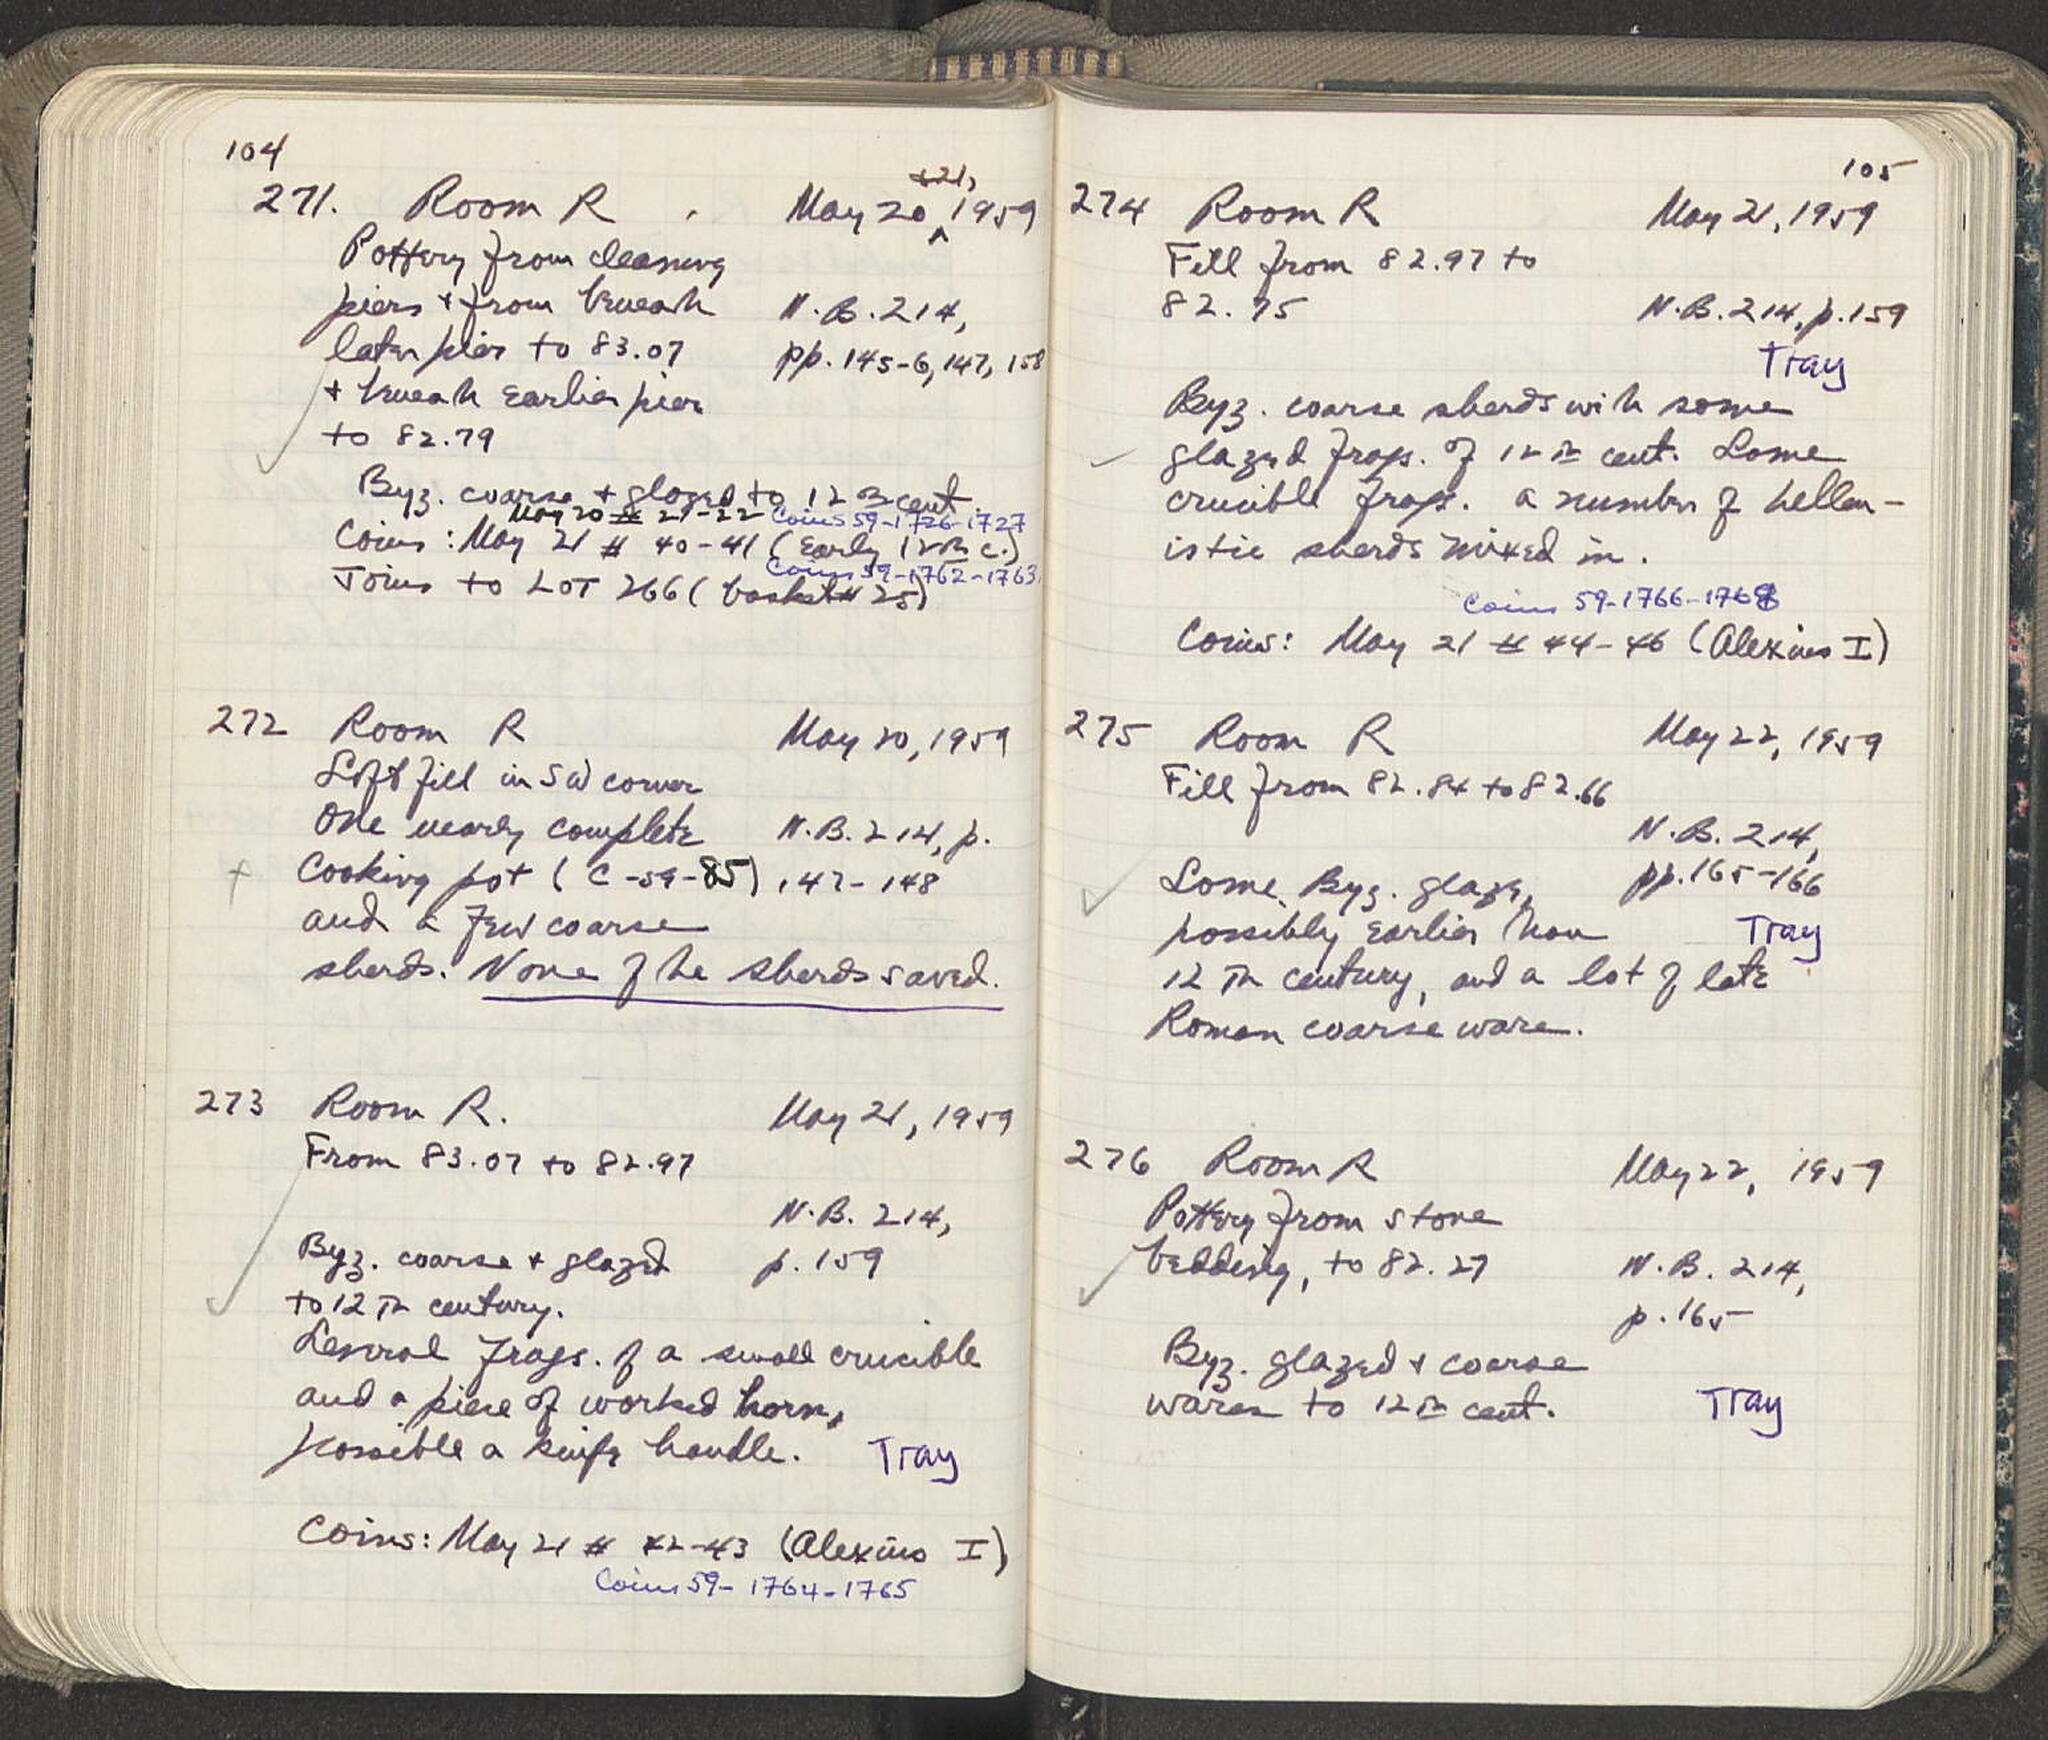 104
& 21,
271. Room R May 20, 1959
Pottery from cleaning
piers & from beneath N.B. 214,
later pier to 83.07 pp. 145-6, 147, 158
& beneath earlier pier
to 82.79
Byz. coarse & glazed to 12th cent.
May 20 # 21-22 Coins 59-1726-1727
Coins: May 21 # 40-41 (Early 12th c.)
Coins 59-1762-1763
Joins to LOT 266 (basket # 25)
272 Room R May 20, 1959
Soft fill in SW corner
One nearly complete N.B. 214, p.
cooking pot (C-59-85) 147-148
and a few coarse
sherds. None of the sherds saved.
273 Room R. May 21, 1959
From 83.07 to 82.97
N.B. 214,
Byz. coarse & glazed p. 159
to 12th century.
Several frags. of a small crucible
and a piece of worked horn,
possible a knife handle. Tray
Coins: May 21 # 42-43 (Alexius I)
Coins 59-1764-1765
105
274 Room R May 21, 1959
Fill from 82.97 to
82.75 N.B. 214, p. 159
Tray
Byz. coarse sherds with some
glazed frags. of 12th cent. Some
crucible frags. a number of hellen-
istic sherds mixed in.
Coins 59-1766-1768
Coins: May 21 # 44-46 (Alexius I)
275 Room R May 22, 1959
Fill from 82.84 to 82.66
N.B. 214,
Some Byz. glaze, pp. 165-166
possibly earlier than Tray
12th century, and a lot of late
Roman coarse ware.
276 Room R May 22, 1959
Pottery from stone
bedding, to 82.27 N.B. 214,
p. 165
Byz. glazed & coarse
wares to 12th cent. Tray